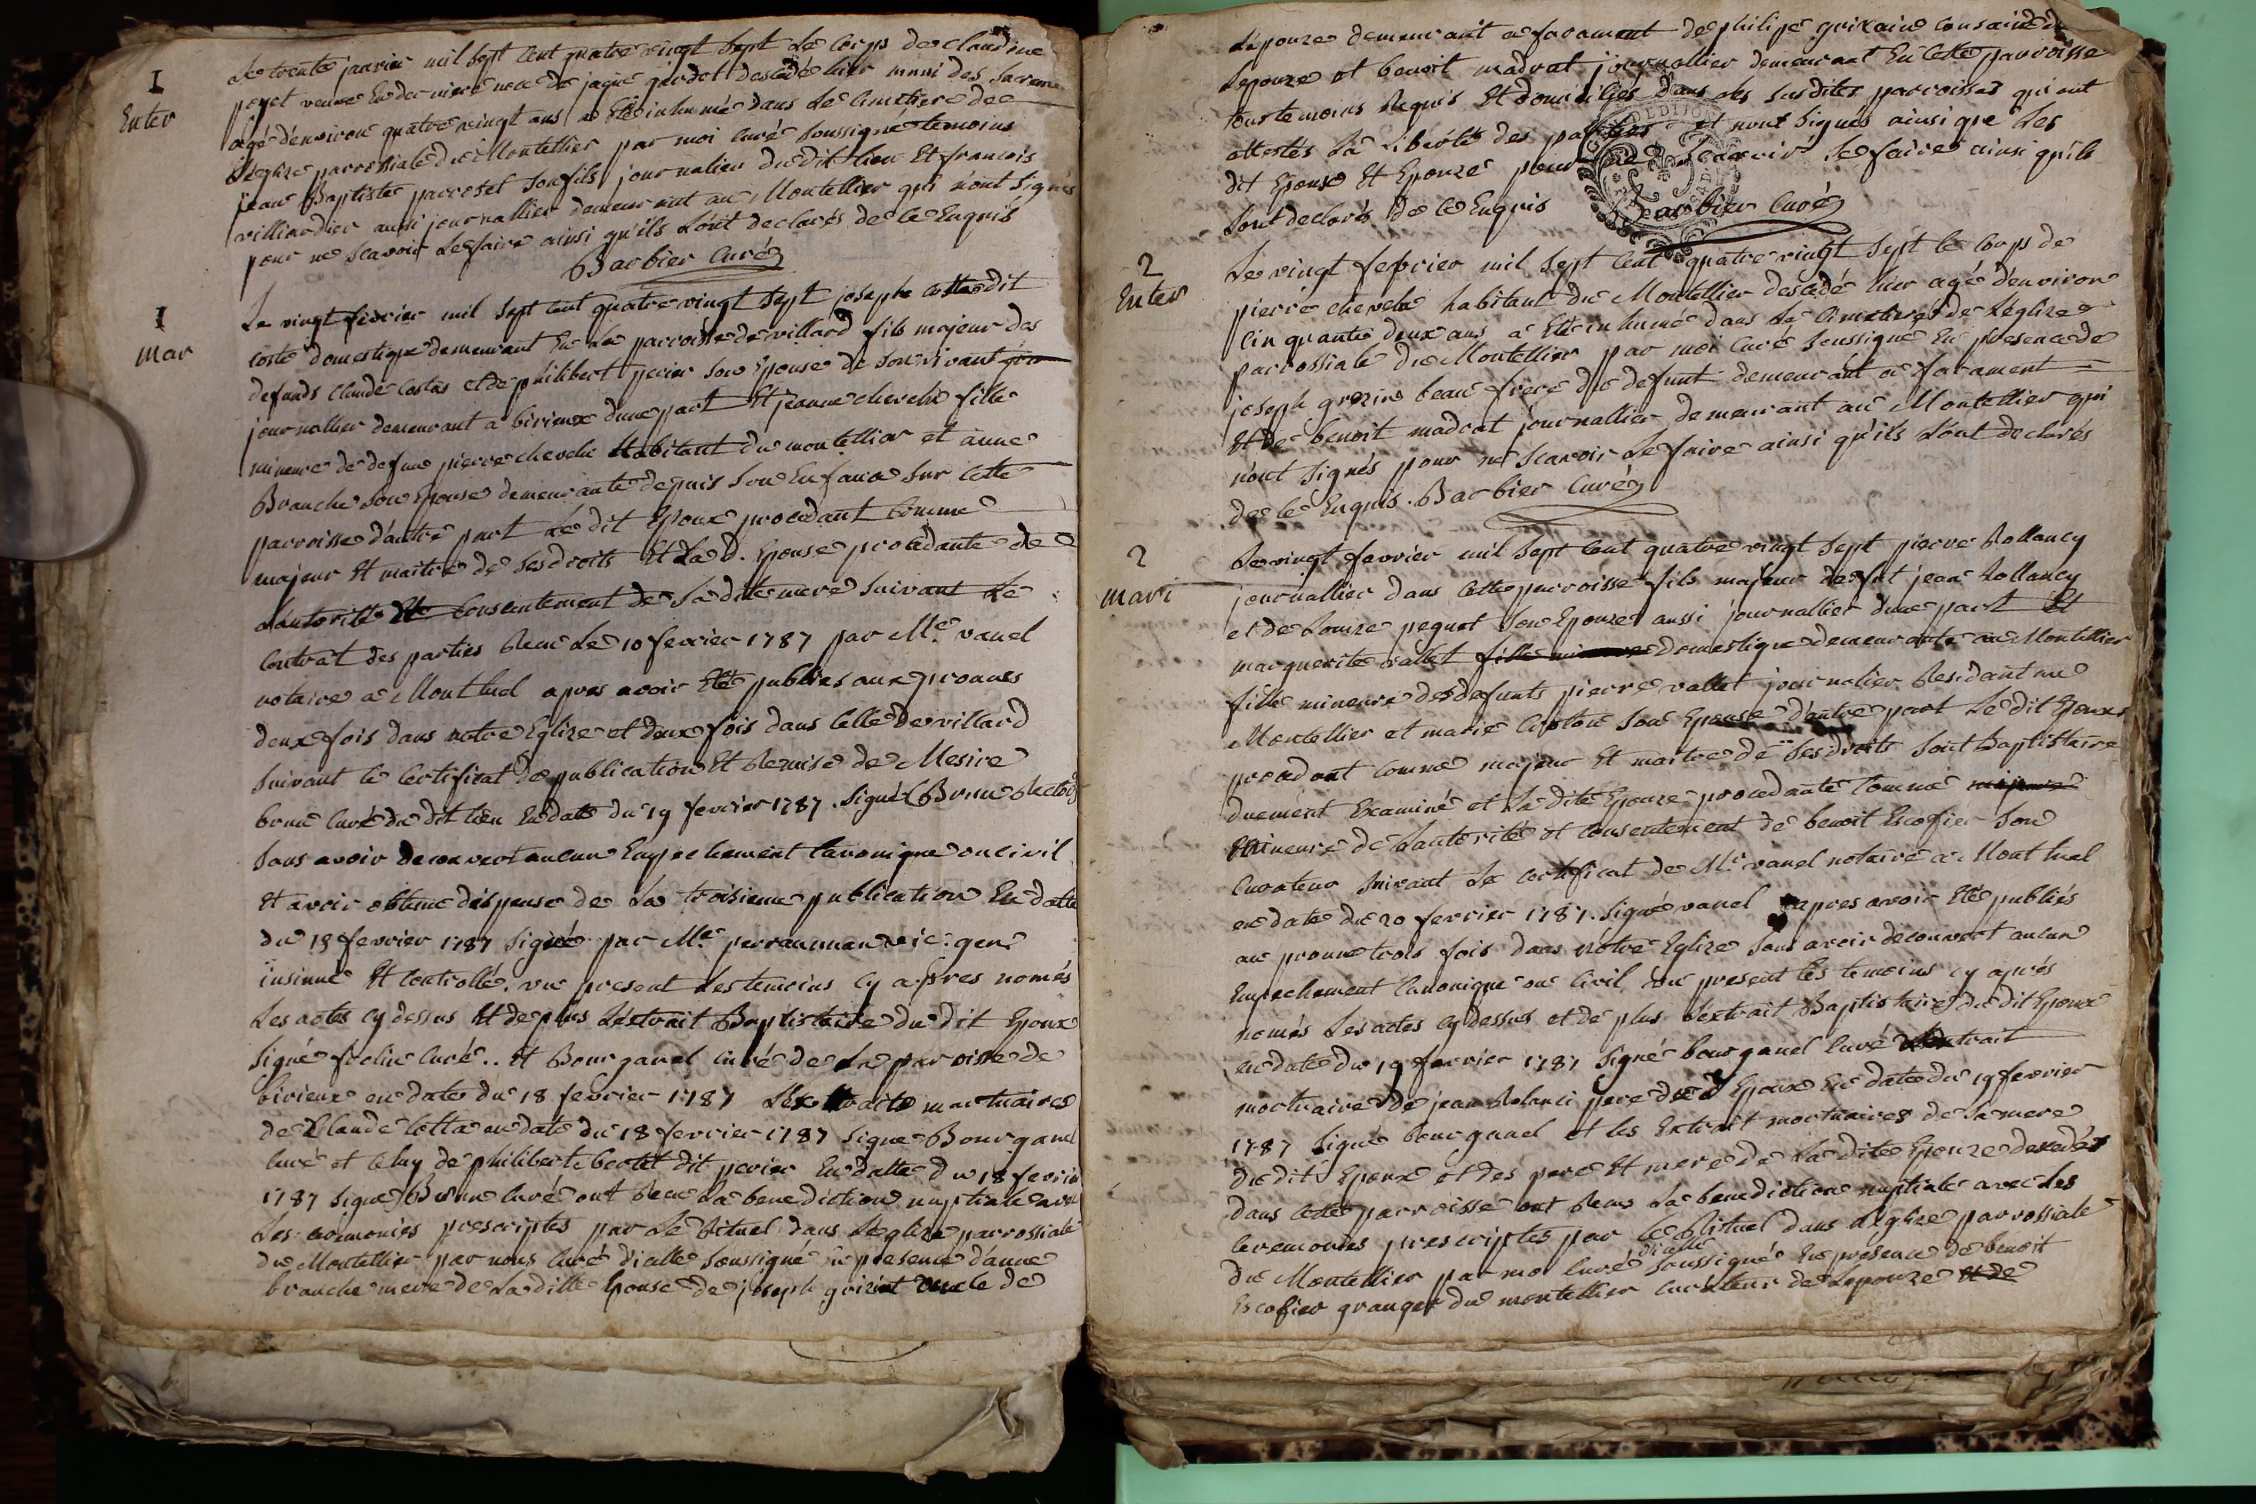 I
Enter
Le trente janvier mil sept cent quatre vingt sept le corps de claudine
poyet veuve en derniere noce de jaque girdet descédé hier muni des sacremen
agé denviron quatre vingt ans a Eté inhumé dans le cimetiere de
l'Eglize parrossiale du Montellier par moi curé soussigné temoins
jean Baptiste parroset son fils journalier du dit lieu Et francois
villiardier aussi journallier demeurant au Montellier qui n'ont signés
pour ne scavoir le faire ainsi qu'ils l'ont declarés de ce Enquis
Barbier Curé
I
mar
Le vingt fevrier mil sept cent quatre vingt sept joseph costas dit
coste domestique demeurant En la parroisse de villard fils majeur des
defunds claude costas et de philibert perier son Epouse de son vivant
journallier demeurant a birieux dune part Et jeanne cheveln fille
mineure de defun pierre chevelu habitant du montellier et anne
Branche son Epouse demeurante depuis son Enfance sur cette
parroisse dautre part le dit Epoux procedant comme
majeur Et maitre de ses droits Et la d. Epouse procedante de
l'autorité Et consentement de sa dite mere suivant le
contrat des parties Recu le 10 fevrier 1787 par Me. vanel
notaire a Montluel apres avoir Eté publiés aux pronnes
deux fois dans notre Eglize et deux fois dans celle de villard
suivant le certificat de publication Et Remise de Mesire
brun curé du dit lieu En date du 19 fevrier 1787. signé Brun Recteur
sans avoir decouvert aucun Empechement canonique ou civil
Et avoir obtenu dispense de la troisieme publication En date
du 18 fevrier 1787 signé par Me. vic. gen.
insinué Et controllé. vu present les temoins cy apres només
Les actes cy dessus Et de plus l'extrait Baptistaire du dit Epoux
signé curé.. Et Bourganel curé de la parroisse de
birieux en date du 18 fevrier 1787 Les extraits mortuaires
de Claude Cotta en date du 18 fevrier 1787 signé Bourganel
curé et celuy de philiberte bertet dit perier En datte du 18 fevrier
1787 signé Brun curé ont Recu la benediction nuptiale avec
Les ceremonies prescriptes par le Rituel dans l'Eglize parrossiale
du Montellier par nous curé d'icelle soussigné en presence d'anne
branche mere de la ditte Epouse de joseph grizint oncle de
l'epouze demeurant a faramant de philipe grizain cousain de
l'epouze et benoit madrat journallier demeurant En cette parroisse
tous temoins Requis Et domiciliés dans les susdites parroisses qui ont
attestés la liberté des parties et n'ont signés ainsi que les
dit Epoux Et Epouze pour ne scavoir le faire ainsi qu'ils
l'ont declarés de ce Enquis Barbier Curé
2
Enter
Le vingt fevrier mil sept cent quatre vingt sept le corps de
pierre chevelu habitant du Montellier descédé hier agé denviron
cinquante deux ans a Eté inhumé dans le cimetiere de l'eglize
parrossiale du Montellier par moi curé soussigné En presence de
joseph grozin beau frere du defunt demeurant a faramant
Et de benoit madrat journallier demeurant au Montellier qui
n'ont signés pour ne scavoir le faire ainsi qu'ils l'ont declarés
de ce Enquis. Barbier Curé
2
mari
Le vingt fevrier mil sept cent quatre vingt sept pierre Rollancy
journallier dans cette parroisse fils majeur de fut jean Rollancy
et de Louize pequet son Epouze aussi journallier dune part Et
marguerite vallet fille mineure domestique demeurante au Montellier
fille mineure des defunts pierre vallet journalier Residant au
Montellier et marie son Epouse d'autre part Le dit Epoux
procedant comme majeur Et maitre de ses droits son Baptistaire
duement Examiné et la dite Epouze procedante comme majeure
mineure de l'autorité et consentement de benoit Escofier son
curateur suivant le certificat de Me. vanel notaire a Montluel
en date du 20 fevrier 1787. signé vanel apres avoir Eté publiés
au pronne trois fois dans nôtre Eglize sans avoir decouvert aucun
Empechement canonique ou civil vu present les temoins cy après
només les actes cy dessus et de plus l'extrait Baptistaire du dit Epoux
en date du 19 fevrier 1787 signé bourganel curé l'extrait
mortuaire de jean Rolanci pere du d Epoux En date du 19 fevrier
1787 signé bourganel et les Extrait mortuaires de la mere
du dit Epoux et des pere Et mere de la dite Epouze descedés
dans cette parroisse ont Recus la benediction nuptiale avec les
ceremonies prescriptes par le Rituel dans l'Eglize parrossiale
du Montellier par moi curé d'icelle soussigné En presence de benoit
Escofier granger du montellier curateur de l'epouze et de